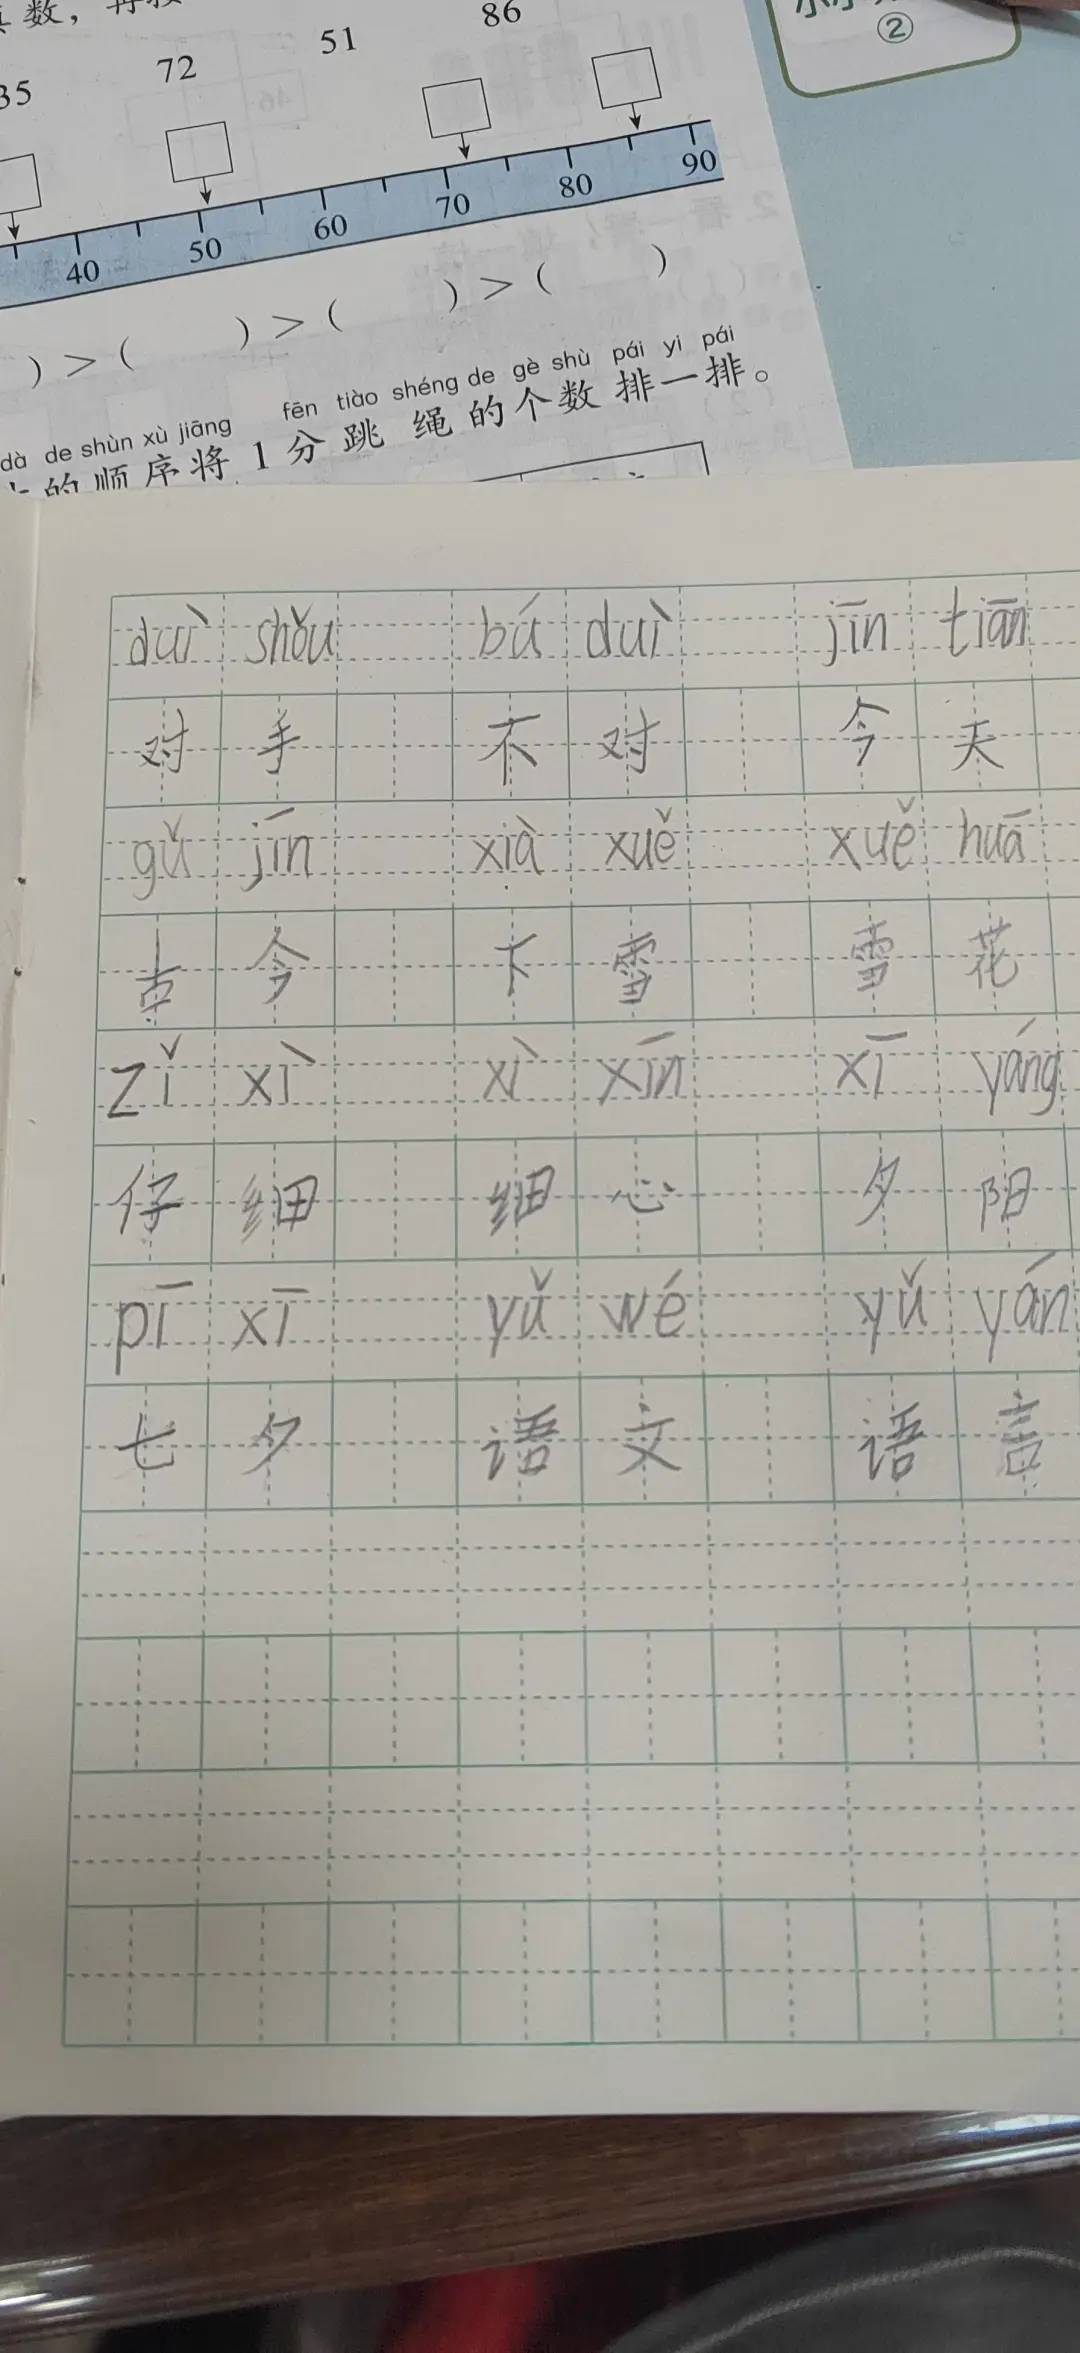 数，再按
35 72 51 86
40 50 60 70 80 90
) > ( ) > ( ) > ( )
dà de shùn xù jiāng fēn tiào shéng de gè shù pái yi pái
的顺序将1分跳绳的个数排一排。
②
duì shǒu bú duì jīn tiān
对手 不对 今天
gǔ jīn xià xuě xuě huā
古今 下雪 雪花
zǐ xì xì xīn xī yáng
仔细 细心 夕阳
pī xī yǔ wé yǔ yán
七夕 语文 语言